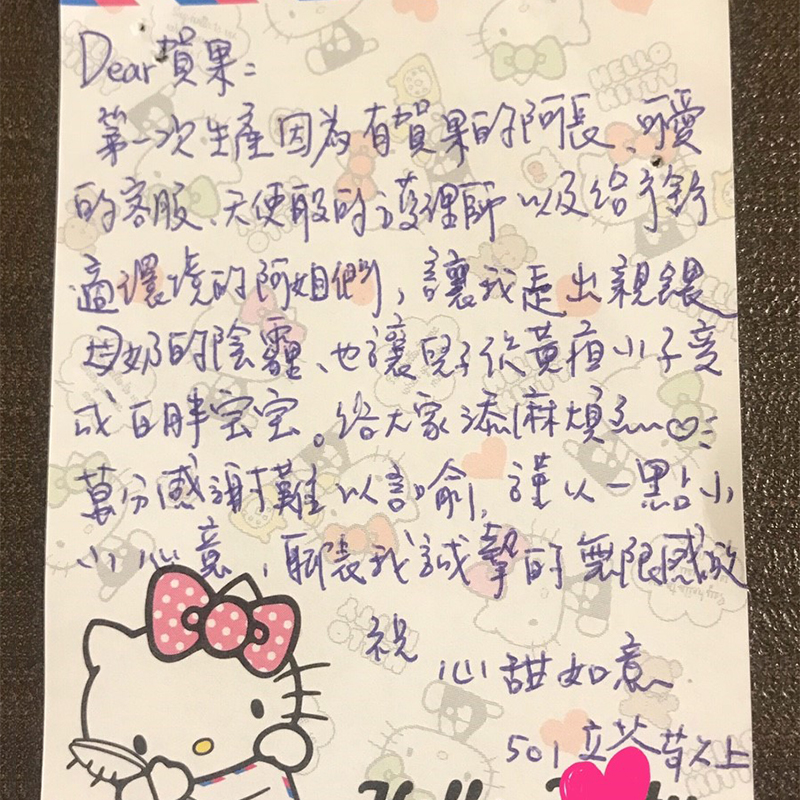 Dear蘋果:
第一次生產因為有賀果的阿長、可愛
的客服、天使般的護理師以及給予舒
適環境的阿姐們,讓我走出親餵
母奶的陰霾、也讓兒子從黃疸小子變
成白胖寶寶。給大家添麻煩了~♡
萬分感謝難以言喻,謹以一點小
小心意,聊表我誠摯的無限感激
祝
心甜如意
501
HELLO KITTY